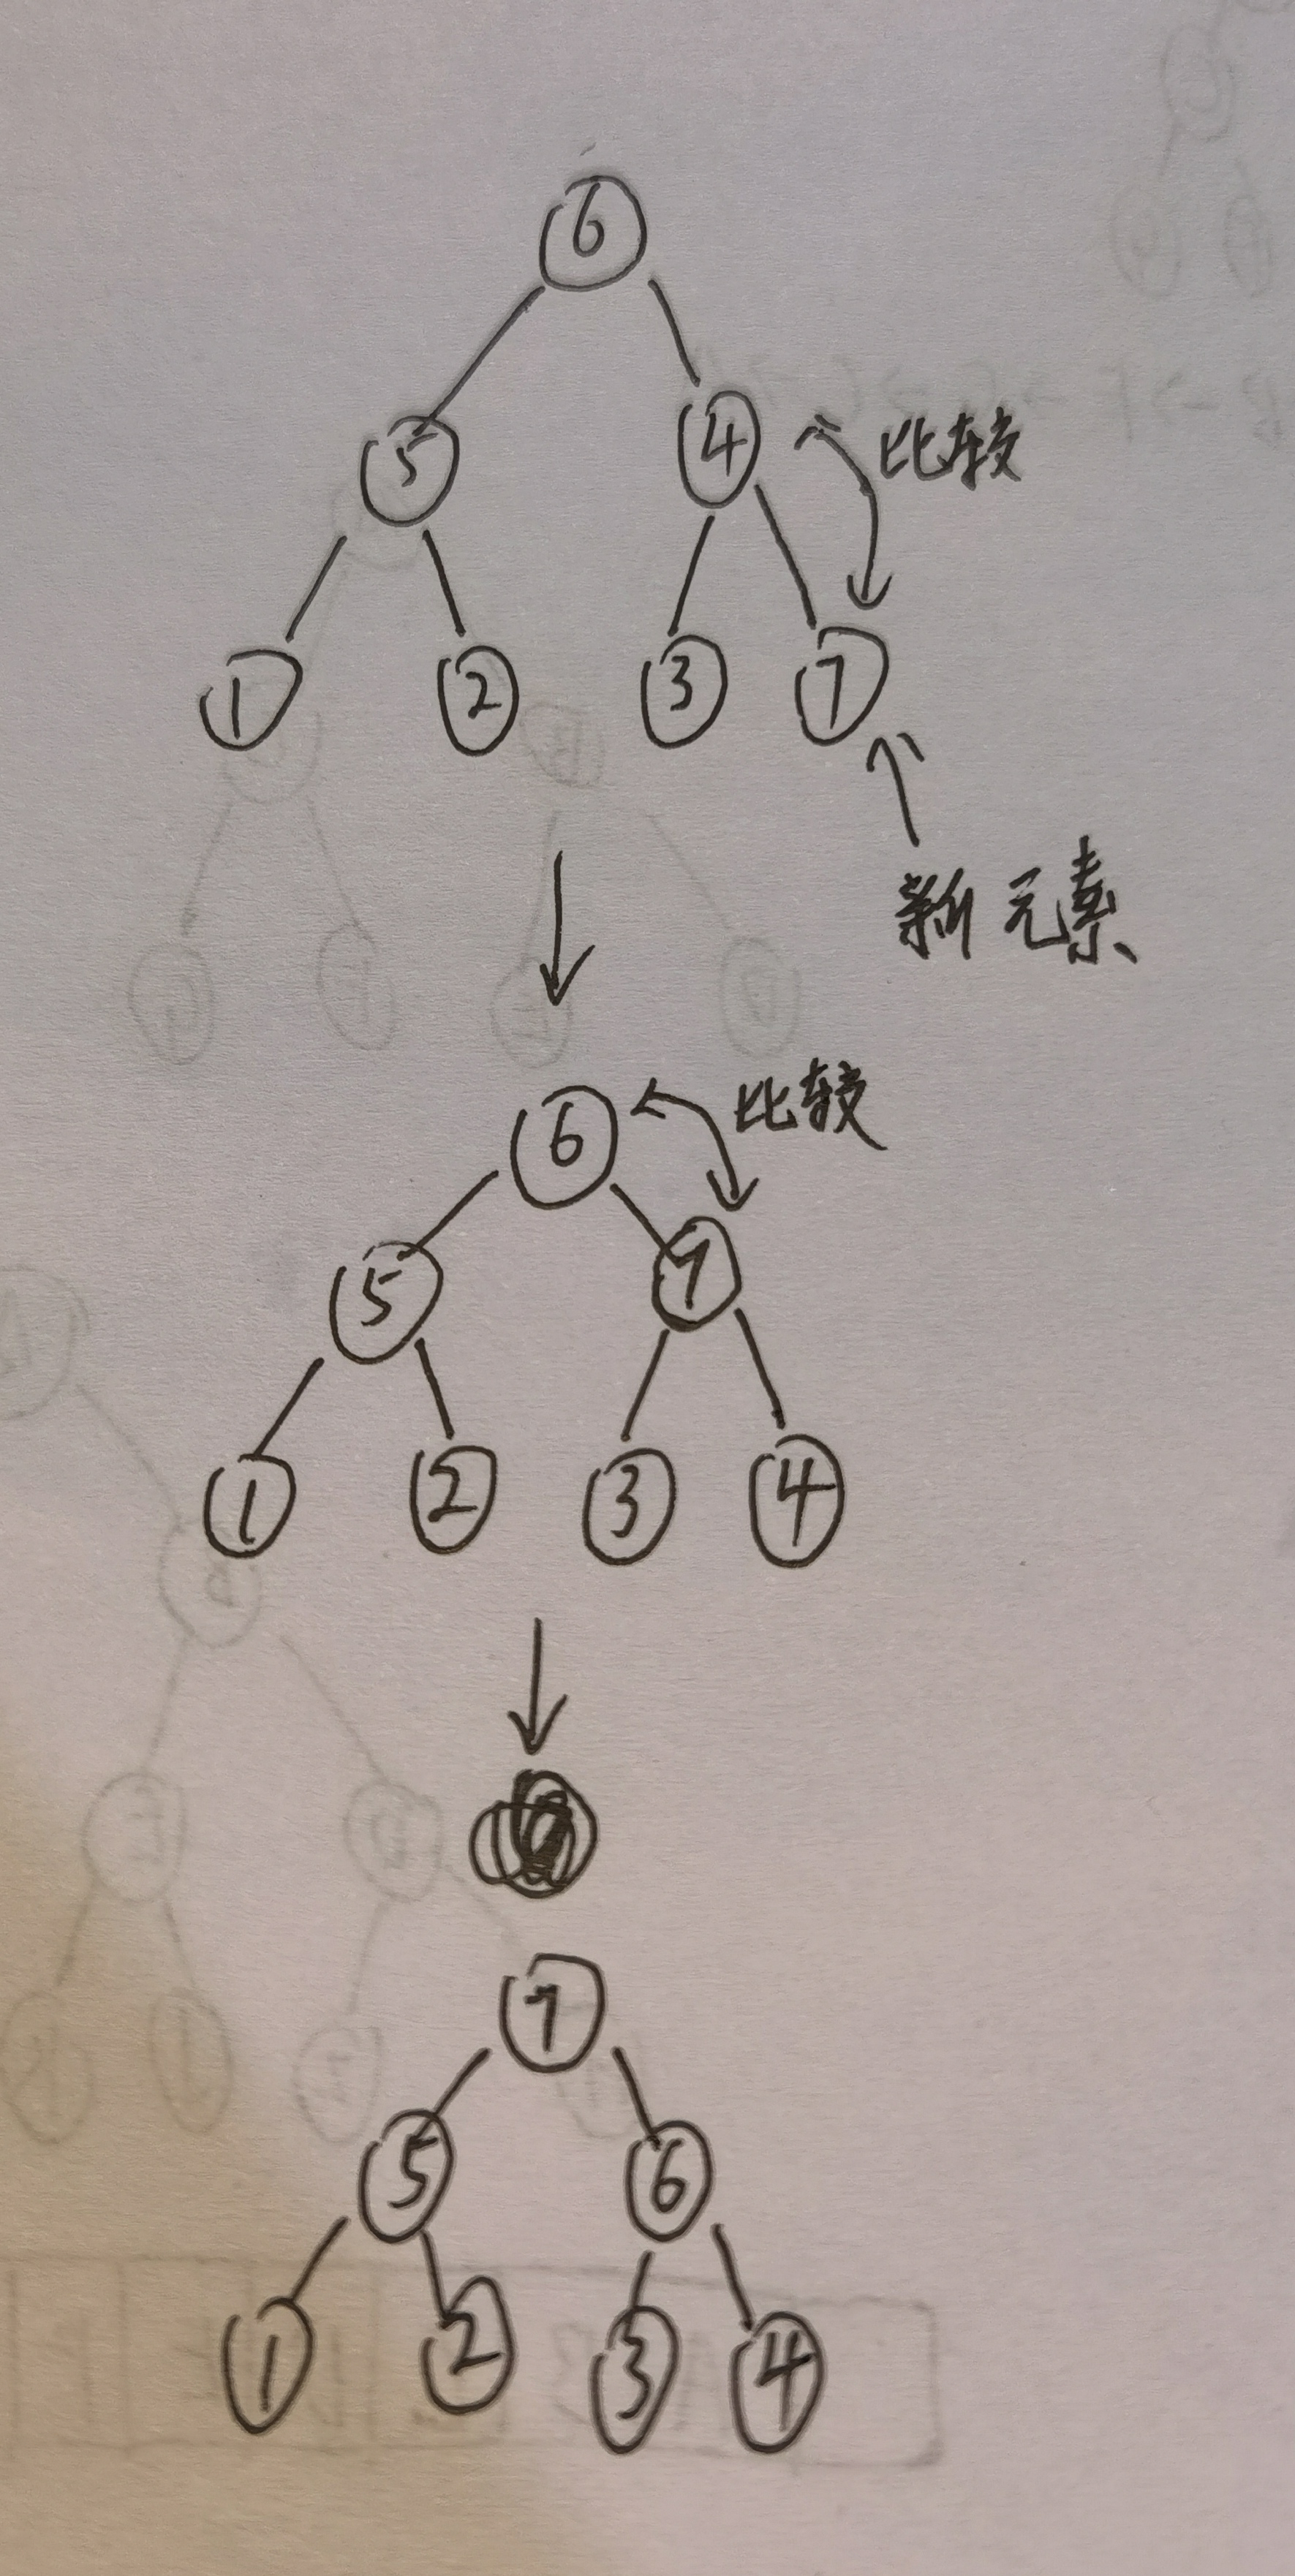 6
5 4 比较
1 2 3 7
新元素
6 比较
5 7
1 2 3 4
7
5 6
1 2 3 4